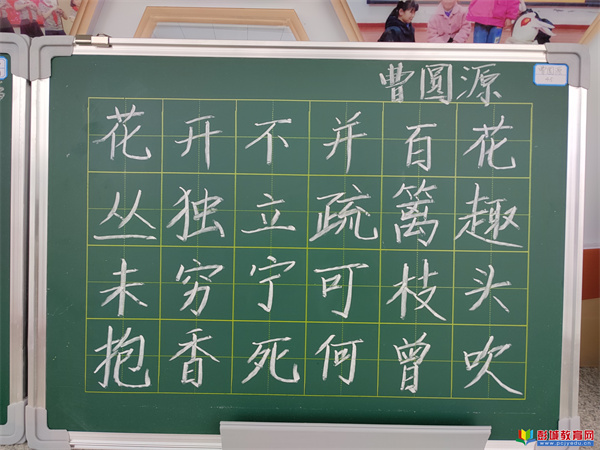 曹圆源
花开不并百花
丛独立疏篱趣
未穷宁可枝头
抱香死何曾吹
彭城教育网
www.pcjyedu.cn